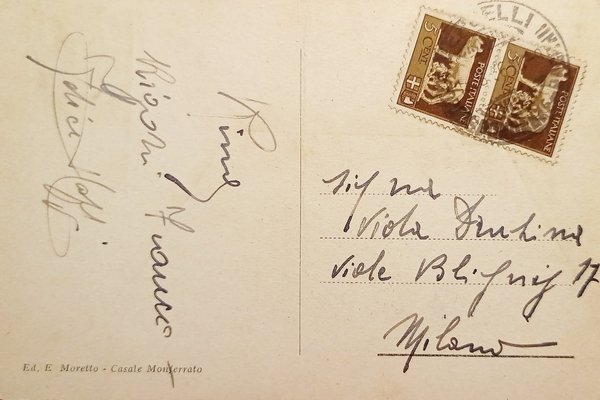 Rina
Righi Franco
Felice
5 CENT
POSTE ITALIANE
5 CENT
POSTE ITALIANE
ELLI
Sig.na
Viola
Viale Bligny 17
Milano
Ed. E Moretto - Casale Monferrato